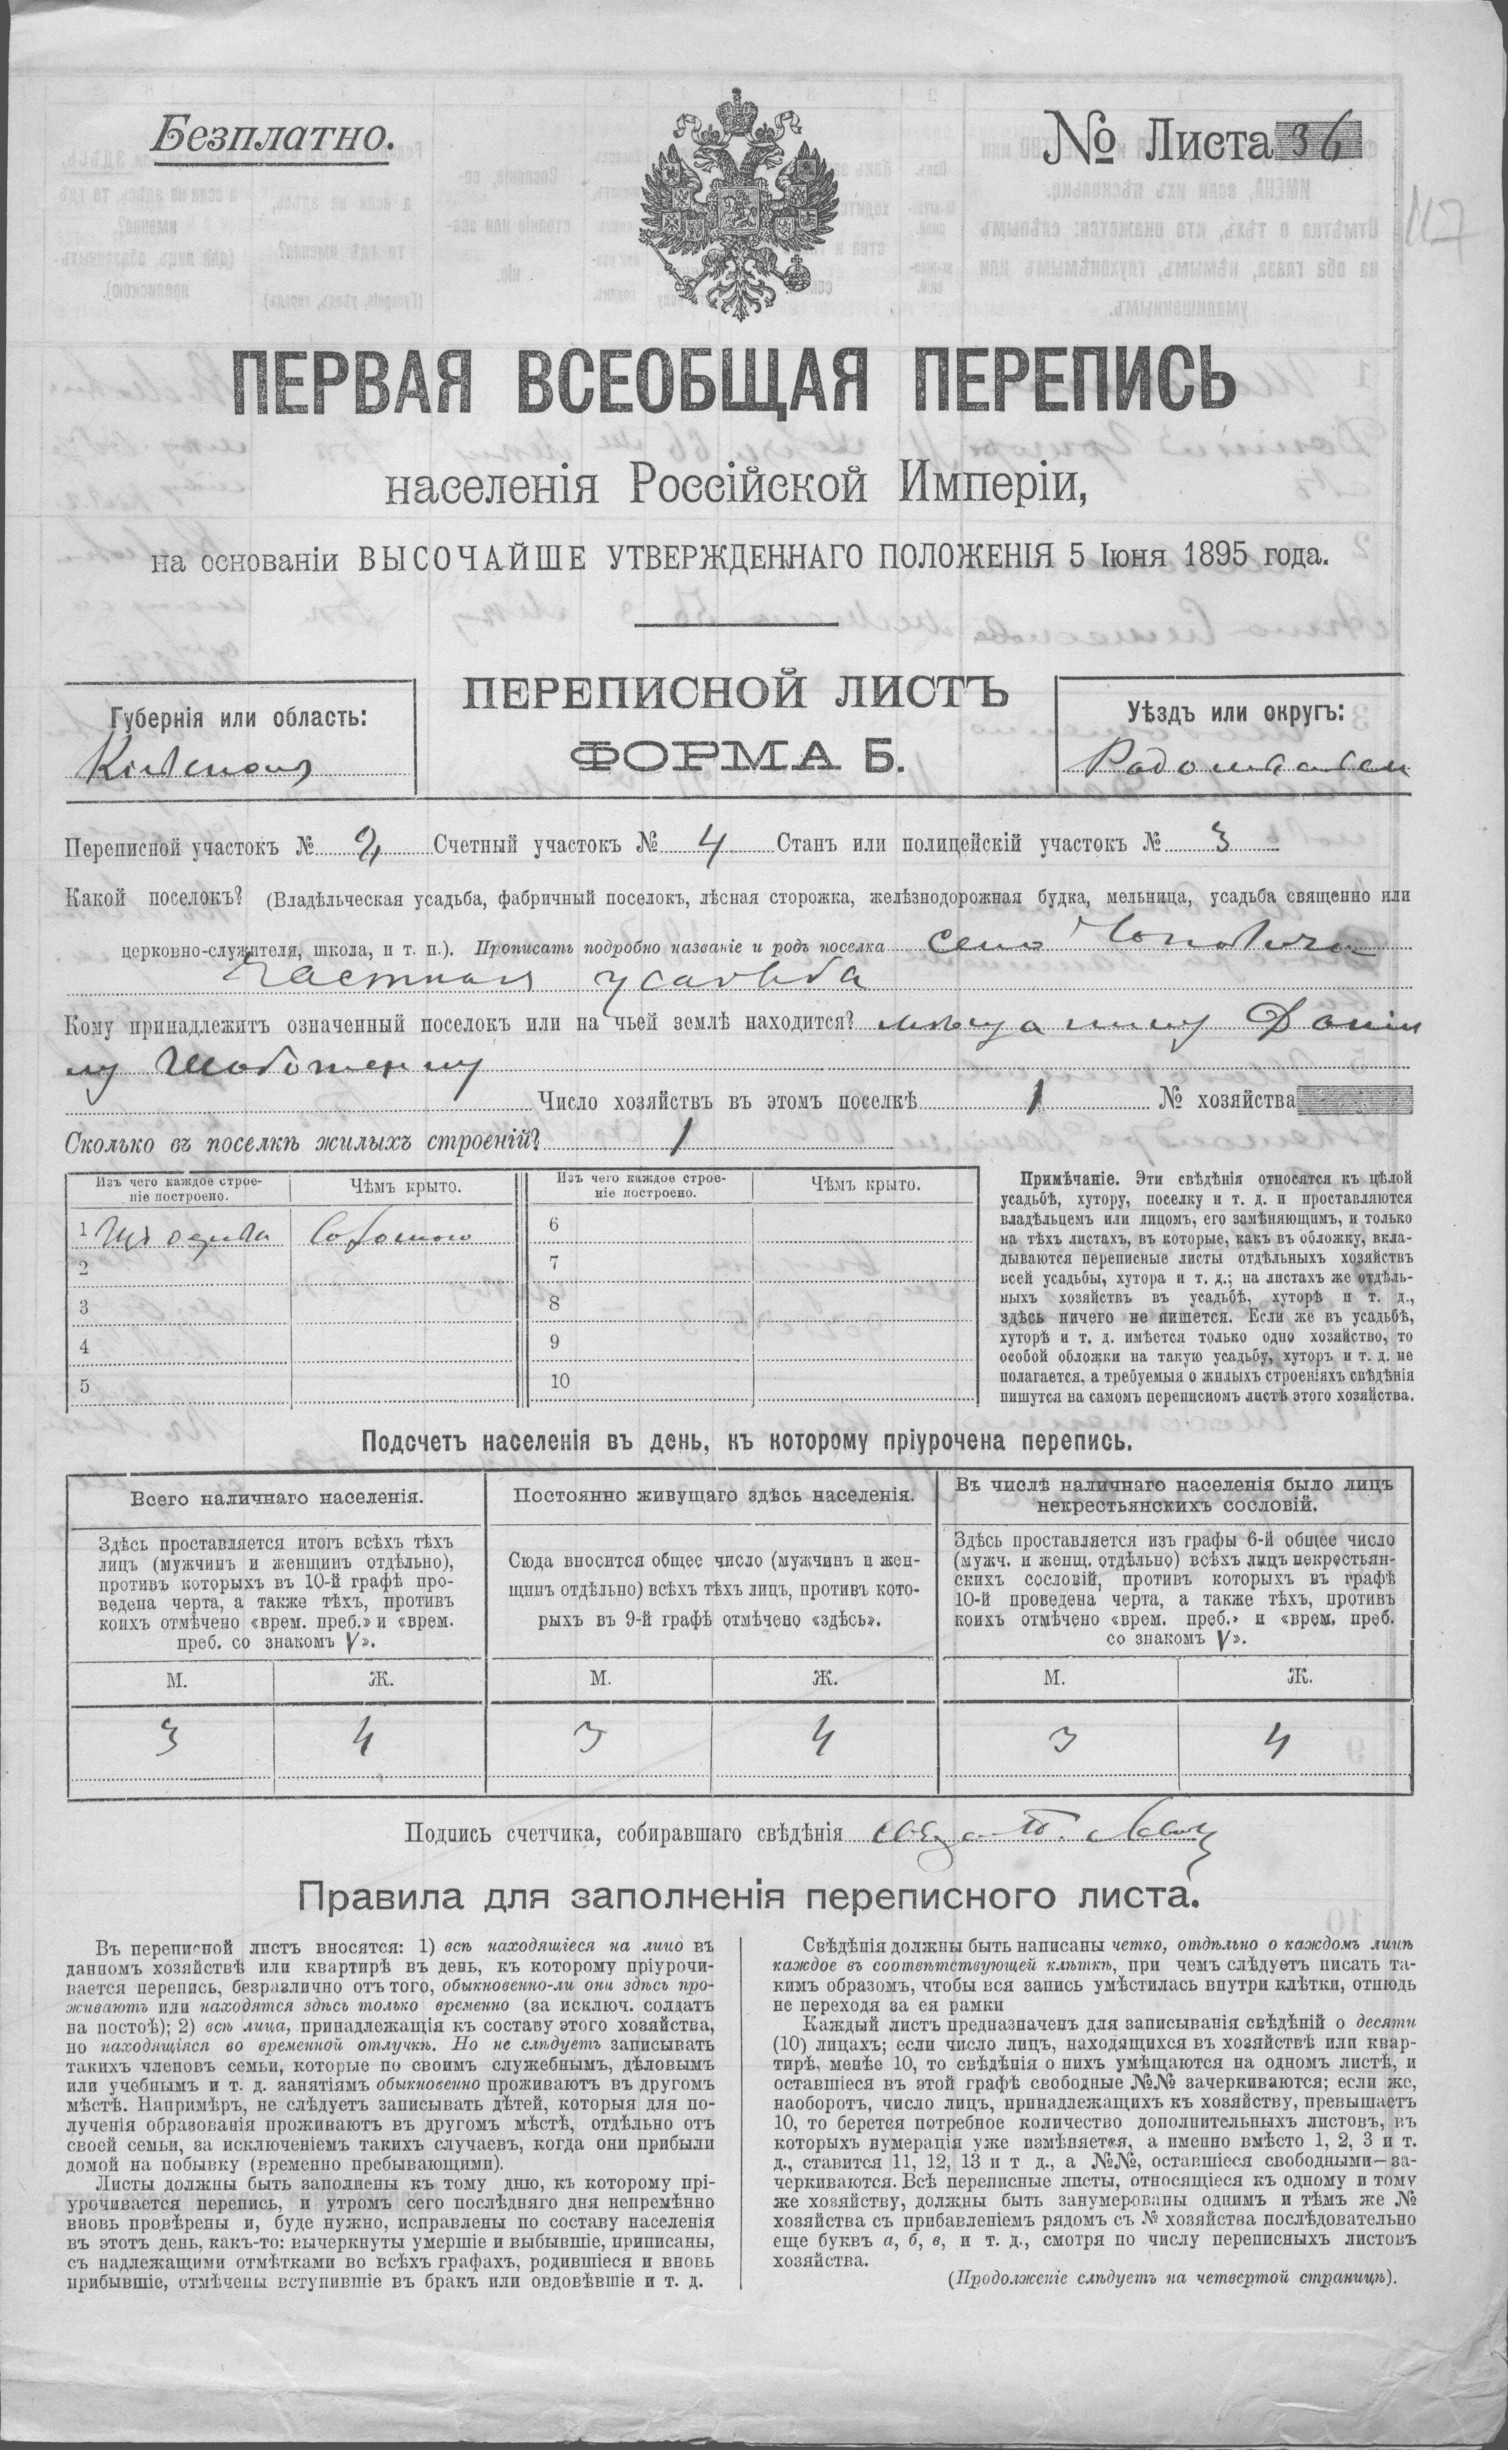 Безплатно.
№ Листа 36
117
ПЕРВАЯ ВСЕОБЩАЯ ПЕРЕПИСЬ
населенія Россійской Имперіи,
на основаніи ВЫСОЧАЙШЕ УТВЕРЖДЕННАГО ПОЛОЖЕНІЯ 5 Іюня 1895 года.
ПЕРЕПИСНОЙ ЛИСТЪ
ФОРМА Б.
Губернія или область:
Кіевская
Уѣздъ или округъ:
Радомысльск
Переписной участокъ № 2 Счетный участокъ № 4 Станъ или полицейскій участокъ № 3
Какой поселокъ? (Владѣльческая усадьба, фабричный поселокъ, лѣсная сторожка, желѣзнодорожная будка, мельница, усадьба священно или
церковно-служителя, школа, и т. п.). Прописать подробно названіе и родъ поселка село Чоповичи
Частная усадьба
Кому принадлежитъ означенный поселокъ или на чьей землѣ находится? мѣщанину Даніи
лу
Число хозяйствъ въ этомъ поселкѣ 1 № хозяйства
Сколько въ поселкѣ жилыхъ строеній? 1
Изъ чего каждое строе-
ніе построено.
Чѣмъ крыто.
Изъ чего каждое строе-
ніе построено.
Чѣмъ крыто.
1 Изъ дерева Соломою
6
2
7
3
8
4
9
5
10
Примѣчаніе. Эти свѣдѣнія относятся къ цѣлой
усадьбѣ, хутору, поселку и т. д. и проставляются
владѣльцемъ или лицомъ, его замѣняющимъ, и только
на тѣхъ листахъ, въ которые, какъ въ обложку, вкла-
дываются переписные листы отдѣльныхъ хозяйствъ
всей усадьбы, хутора и т. д.; на листахъ же отдѣль-
ныхъ хозяйствъ въ усадьбѣ, хуторѣ и т. д.,
здѣсь ничего не пишется. Если же въ усадьбѣ,
хуторѣ и т. д. имѣется только одно хозяйство, то
особой обложки на такую усадьбу, хуторъ и т. д. не
полагается, а требуемыя о жилыхъ строеніяхъ свѣдѣнія
пишутся на самомъ переписномъ листѣ этого хозяйства.
Подсчетъ населенія въ день, къ которому пріурочена перепись.
Всего наличнаго населенія.
Здѣсь проставляется итогъ всѣхъ тѣхъ
лицъ (мужчинъ и женщинъ отдѣльно),
противъ которыхъ въ 10-й графѣ про-
ведена черта, а также тѣхъ, противъ
коихъ отмѣчено «врем. преб.» и «врем.
преб. со знакомъ V».
М. Ж.
3 4
Постоянно живущаго здѣсь населенія.
Сюда вносится общее число (мужчинъ и жен-
щинъ отдѣльно) всѣхъ тѣхъ лицъ, противъ кото-
рыхъ въ 9-й графѣ отмѣчено «здѣсь».
М. Ж.
3 4
Въ числѣ наличнаго населенія было лицъ
некрестьянскихъ сословій.
Здѣсь проставляется изъ графы 6-й общее число
(мужч. и женщ. отдѣльно) всѣхъ лицъ некрестьян-
скихъ сословій, противъ которыхъ въ графѣ
10-й проведена черта, а также тѣхъ, противъ
коихъ отмѣчено «врем. преб.» и «врем. преб.
со знакомъ V».
М. Ж.
3 4
Подпись счетчика, собиравшаго свѣдѣнія
Правила для заполненія переписного листа.
Въ переписной листъ вносятся: 1) всѣ находящіеся на лицо въ
данномъ хозяйствѣ или квартирѣ въ день, къ которому пріурочи-
вается перепись, безразлично отъ того, обыкновенно-ли они здѣсь про-
живаютъ или находятся здѣсь только временно (за исключ. солдатъ
на постоѣ); 2) всѣ лица, принадлежащія къ составу этого хозяйства,
но находящіяся во временной отлучкѣ. Но не слѣдуетъ записывать
такихъ членовъ семьи, которые по своимъ служебнымъ, дѣловымъ
или учебнымъ и т. д. занятіямъ обыкновенно проживаютъ въ другомъ
мѣстѣ. Напримѣръ, не слѣдуетъ записывать дѣтей, которыя для по-
лученія образованія проживаютъ въ другомъ мѣстѣ, отдѣльно отъ
своей семьи, за исключеніемъ такихъ случаевъ, когда они прибыли
домой на побывку (временно пребывающими).
Листы должны быть заполнены къ тому дню, къ которому прі-
урочивается перепись, и утромъ сего послѣдняго дня непремѣнно
вновь провѣрены и, буде нужно, исправлены по составу населенія
въ этотъ день, какъ-то: вычеркнуты умершіе и выбывшіе, приписаны,
съ надлежащими отмѣтками во всѣхъ графахъ, родившіеся и вновь
прибывшіе, отмѣчены вступившіе въ бракъ или овдовѣвшіе и т. д.
Свѣдѣнія должны быть написаны четко, отдѣльно о каждомъ лицѣ
каждое въ соотвѣтствующей клѣткѣ, при чемъ слѣдуетъ писать та-
кимъ образомъ, чтобы вся запись умѣстилась внутри клѣтки, отнюдь
не переходя за ея рамки
Каждый листъ предназначенъ для записыванія свѣдѣній о десяти
(10) лицахъ; если число лицъ, находящихся въ хозяйствѣ или квар-
тирѣ, менѣе 10, то свѣдѣнія о нихъ умѣщаются на одномъ листѣ, и
оставшіеся въ этой графѣ свободные №№ зачеркиваются; если же,
наоборотъ, число лицъ, принадлежащихъ къ хозяйству, превышаетъ
10, то берется потребное количество дополнительныхъ листовъ, въ
которыхъ нумерація уже измѣняется, а именно вмѣсто 1, 2, 3 и т.
д., ставится 11, 12, 13 и т д., а №№, оставшіеся свободными—за-
черкиваются. Всѣ переписные листы, относящіеся къ одному и тому
же хозяйству, должны быть занумерованы однимъ и тѣмъ же №
хозяйства съ прибавленіемъ рядомъ съ № хозяйства послѣдовательно
еще буквъ а, б, в, и т. д., смотря по числу переписныхъ листовъ
хозяйства.
(Продолженіе слѣдуетъ на четвертой страницѣ).